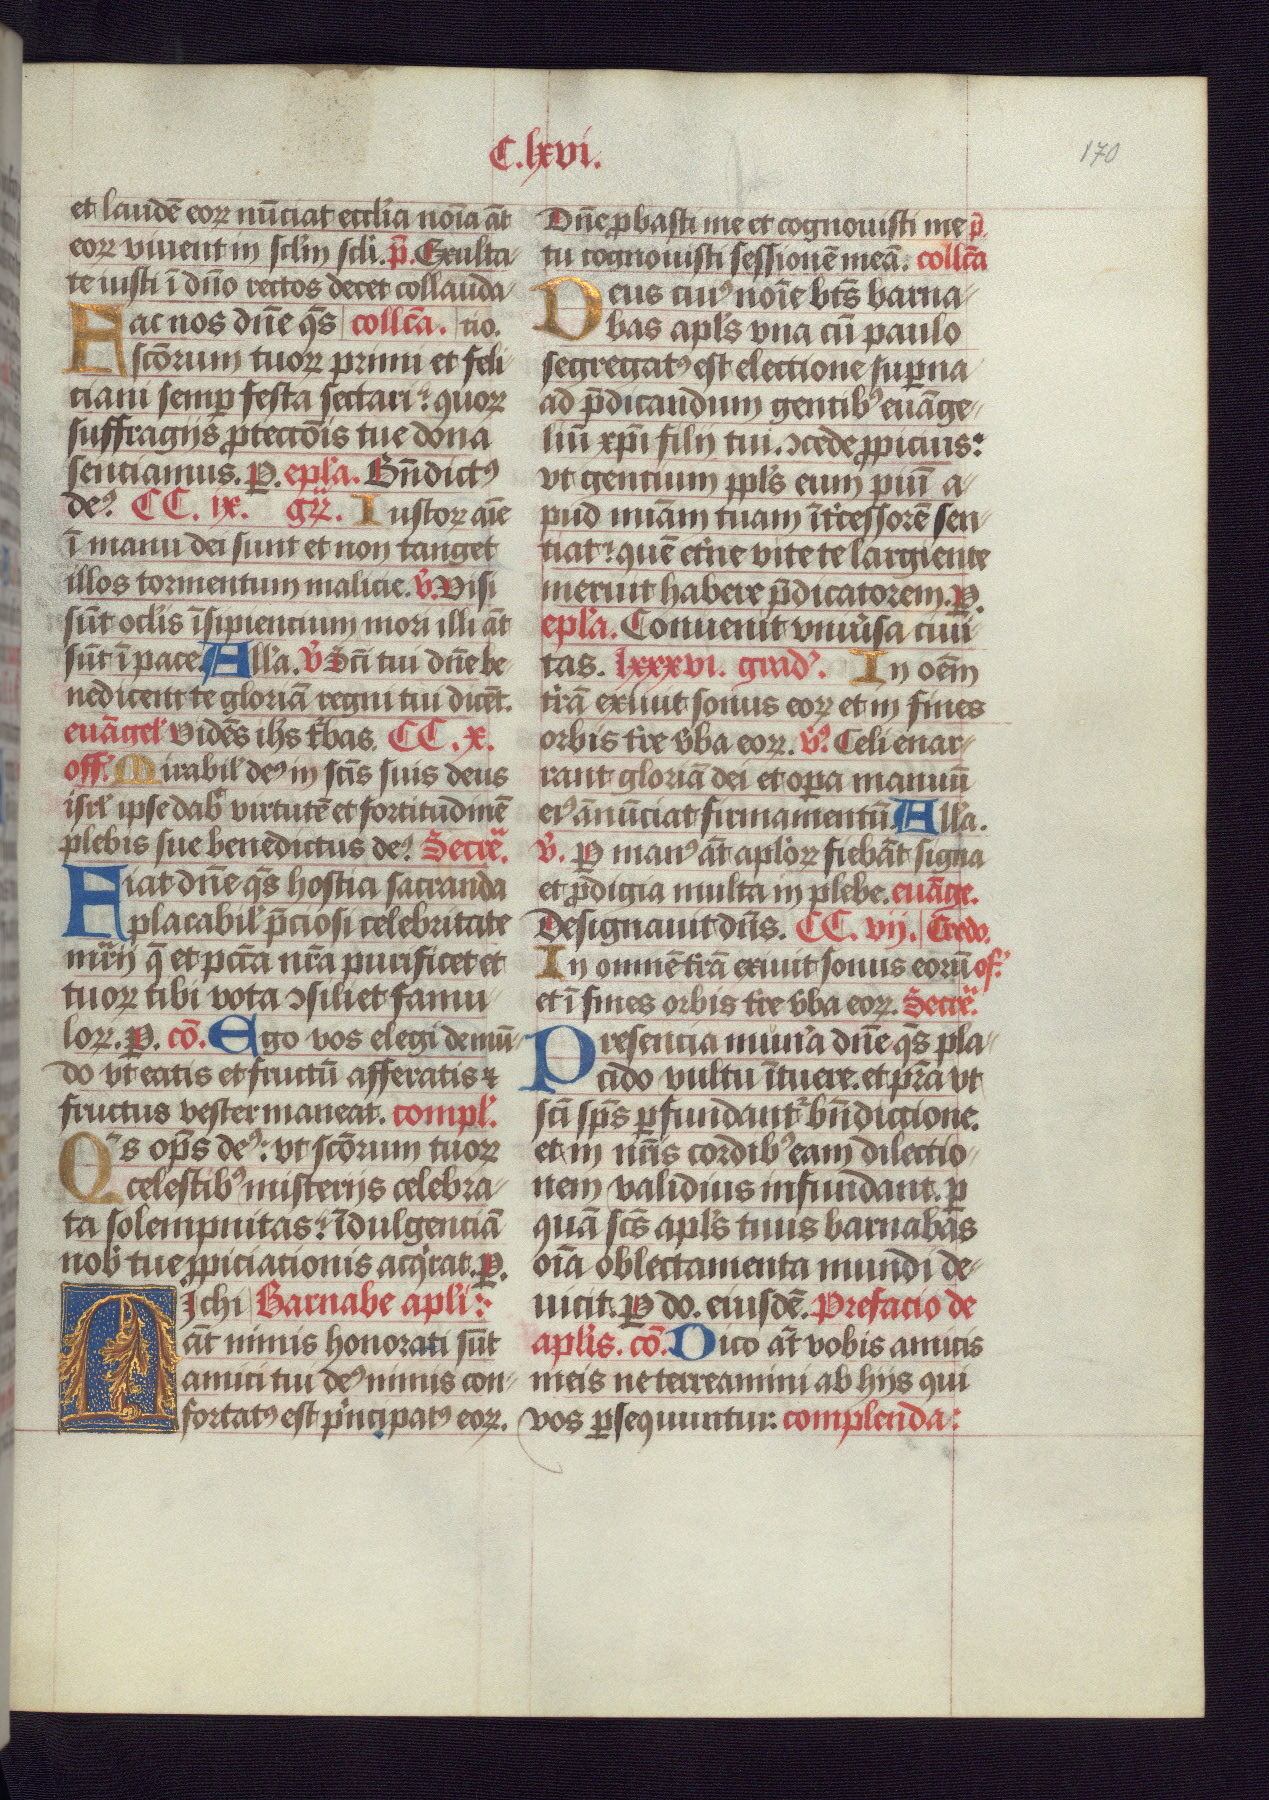 C.lxvi.
170
et laudē eoꝝ nūciat ecclīa noīa āt
eoꝝ viuent in sclm̄ scli. p̄. Exulta
te iusti ī dn̄o rectos decet collauda
Fac nos dn̄e q̄s collcā. tio.
sctōrum tuoꝝ primi et feli
ciani semꝑ festa sectari: quoꝝ
suffragijs ꝓtectōis tue dona
sentiamus. P. epl̄a. Bn̄dictꝰ
deꝰ CC. ix. gr̄. Iustoꝝ aīe
ī manu dei sunt et non tanget
illos tormentum malicie. v̄. Visi
sūt oclīs īsipientium mori illi āt
sūt ī pace. All'a. v̄ Sc̄i tui dn̄e be
nedicent te gloriā regni tui dicēt.
euāgel' Vidēs ih̄s t̄bas. CC. x.
off. Mirabil' deꝰ in sc̄is suis deus
isrl' ipse dab' virtutē et fortitudinē
plebis sue benedictus deꝰ. Secre.
Fiat dn̄e q̄s hostia sacranda
placabil' p̄ciosi celebritate
mr̄ij q̄ et pcc̄a nr̄a purificet et
tuoꝝ tibi vota ꝯsiliet famu
loꝝ. P. cō. Ego vos elegi de mū
do vt eatis et fructū afferatis ⁊
fructus vester maneat. compl'.
Q's op̄s deꝰ: vt sctōrum tuoꝝ
celestibꝰ misterijs celebra
ta solempnitas: īdulgentiā
nob' tue ꝓpiciationis acq̄rat. P.
Michi Barnabe apl'i:
āt nimis honorati sūt
amici tui deꝰ nimis con
fortatꝰ est p'ncipatꝰ eoꝝ.
Dn̄e ꝓbasti me et cognouisti me p̄.
tu cognouisti sessionē meā. collcā
Deus cuiꝰ noīe bt̄s barna
bas apl's vna cū paulo
segregatꝰ est electione suꝑna
ad p̄dicandum gentibꝰ euāge
liū xp̄i filij tui. ꝯcede ꝓpicius:
vt gentium ppl's eum piū a
pud miām tuam īt'cessorē sen
tiat: quē et'ne vite te largiente
meruit habere p̄dicatorem. P.
epl'a. Conuenit vniu'sa ciui
tas. lxxxvi. gradꝰ. In oēm
t'rā exiuit sonus eoꝝ et in fines
orbis t're v'ba eoꝝ. v̄ꝰ. Celi enar
rant gloriā dei et oꝑa manuū
eiꝰ ānūciat firmamentū. All'a.
v̄. P manꝰ āt apl'oꝝ fiebāt signa
et ꝓdigia multa in plebe. euāge.
Designauit dn̄s. CC. vij. Credo.
In omnē t'rā exiuit sonus eorū of.
et ī fines orbis t're v'ba eoꝝ. Secre.
Presencia mun'a dn̄e q̄s pla
cido vultu ītuere. et p̄sta vt
sc̄i sp̄s ꝑfundant' bn̄dictione.
et in nr̄is cordibꝰ eam dilectio
nem validius infundant. ꝑ
quā sc̄s apl's tuus barnabas
oīa oblectamenta mundi de
uicit. P do. eiusdē. Prefacio de
apl'is. cō. Dico āt vobis amicis
meis ne terreamini ab hijs qui
vos ꝑsequuntur: complenda: